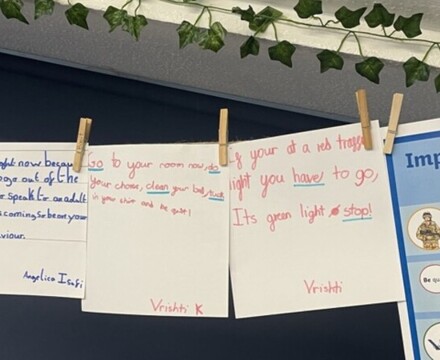 now becau
out of the
speak to an adult
is coming, so be on your
viour.
Angelica Isufi
Go to your room now, do
your chose, clean your bed, tuck
in your shirt and be quite!
Vrishti K
if your at a red traff
light you have to go,
Its green light stop!
Vrishti
Imp
Be